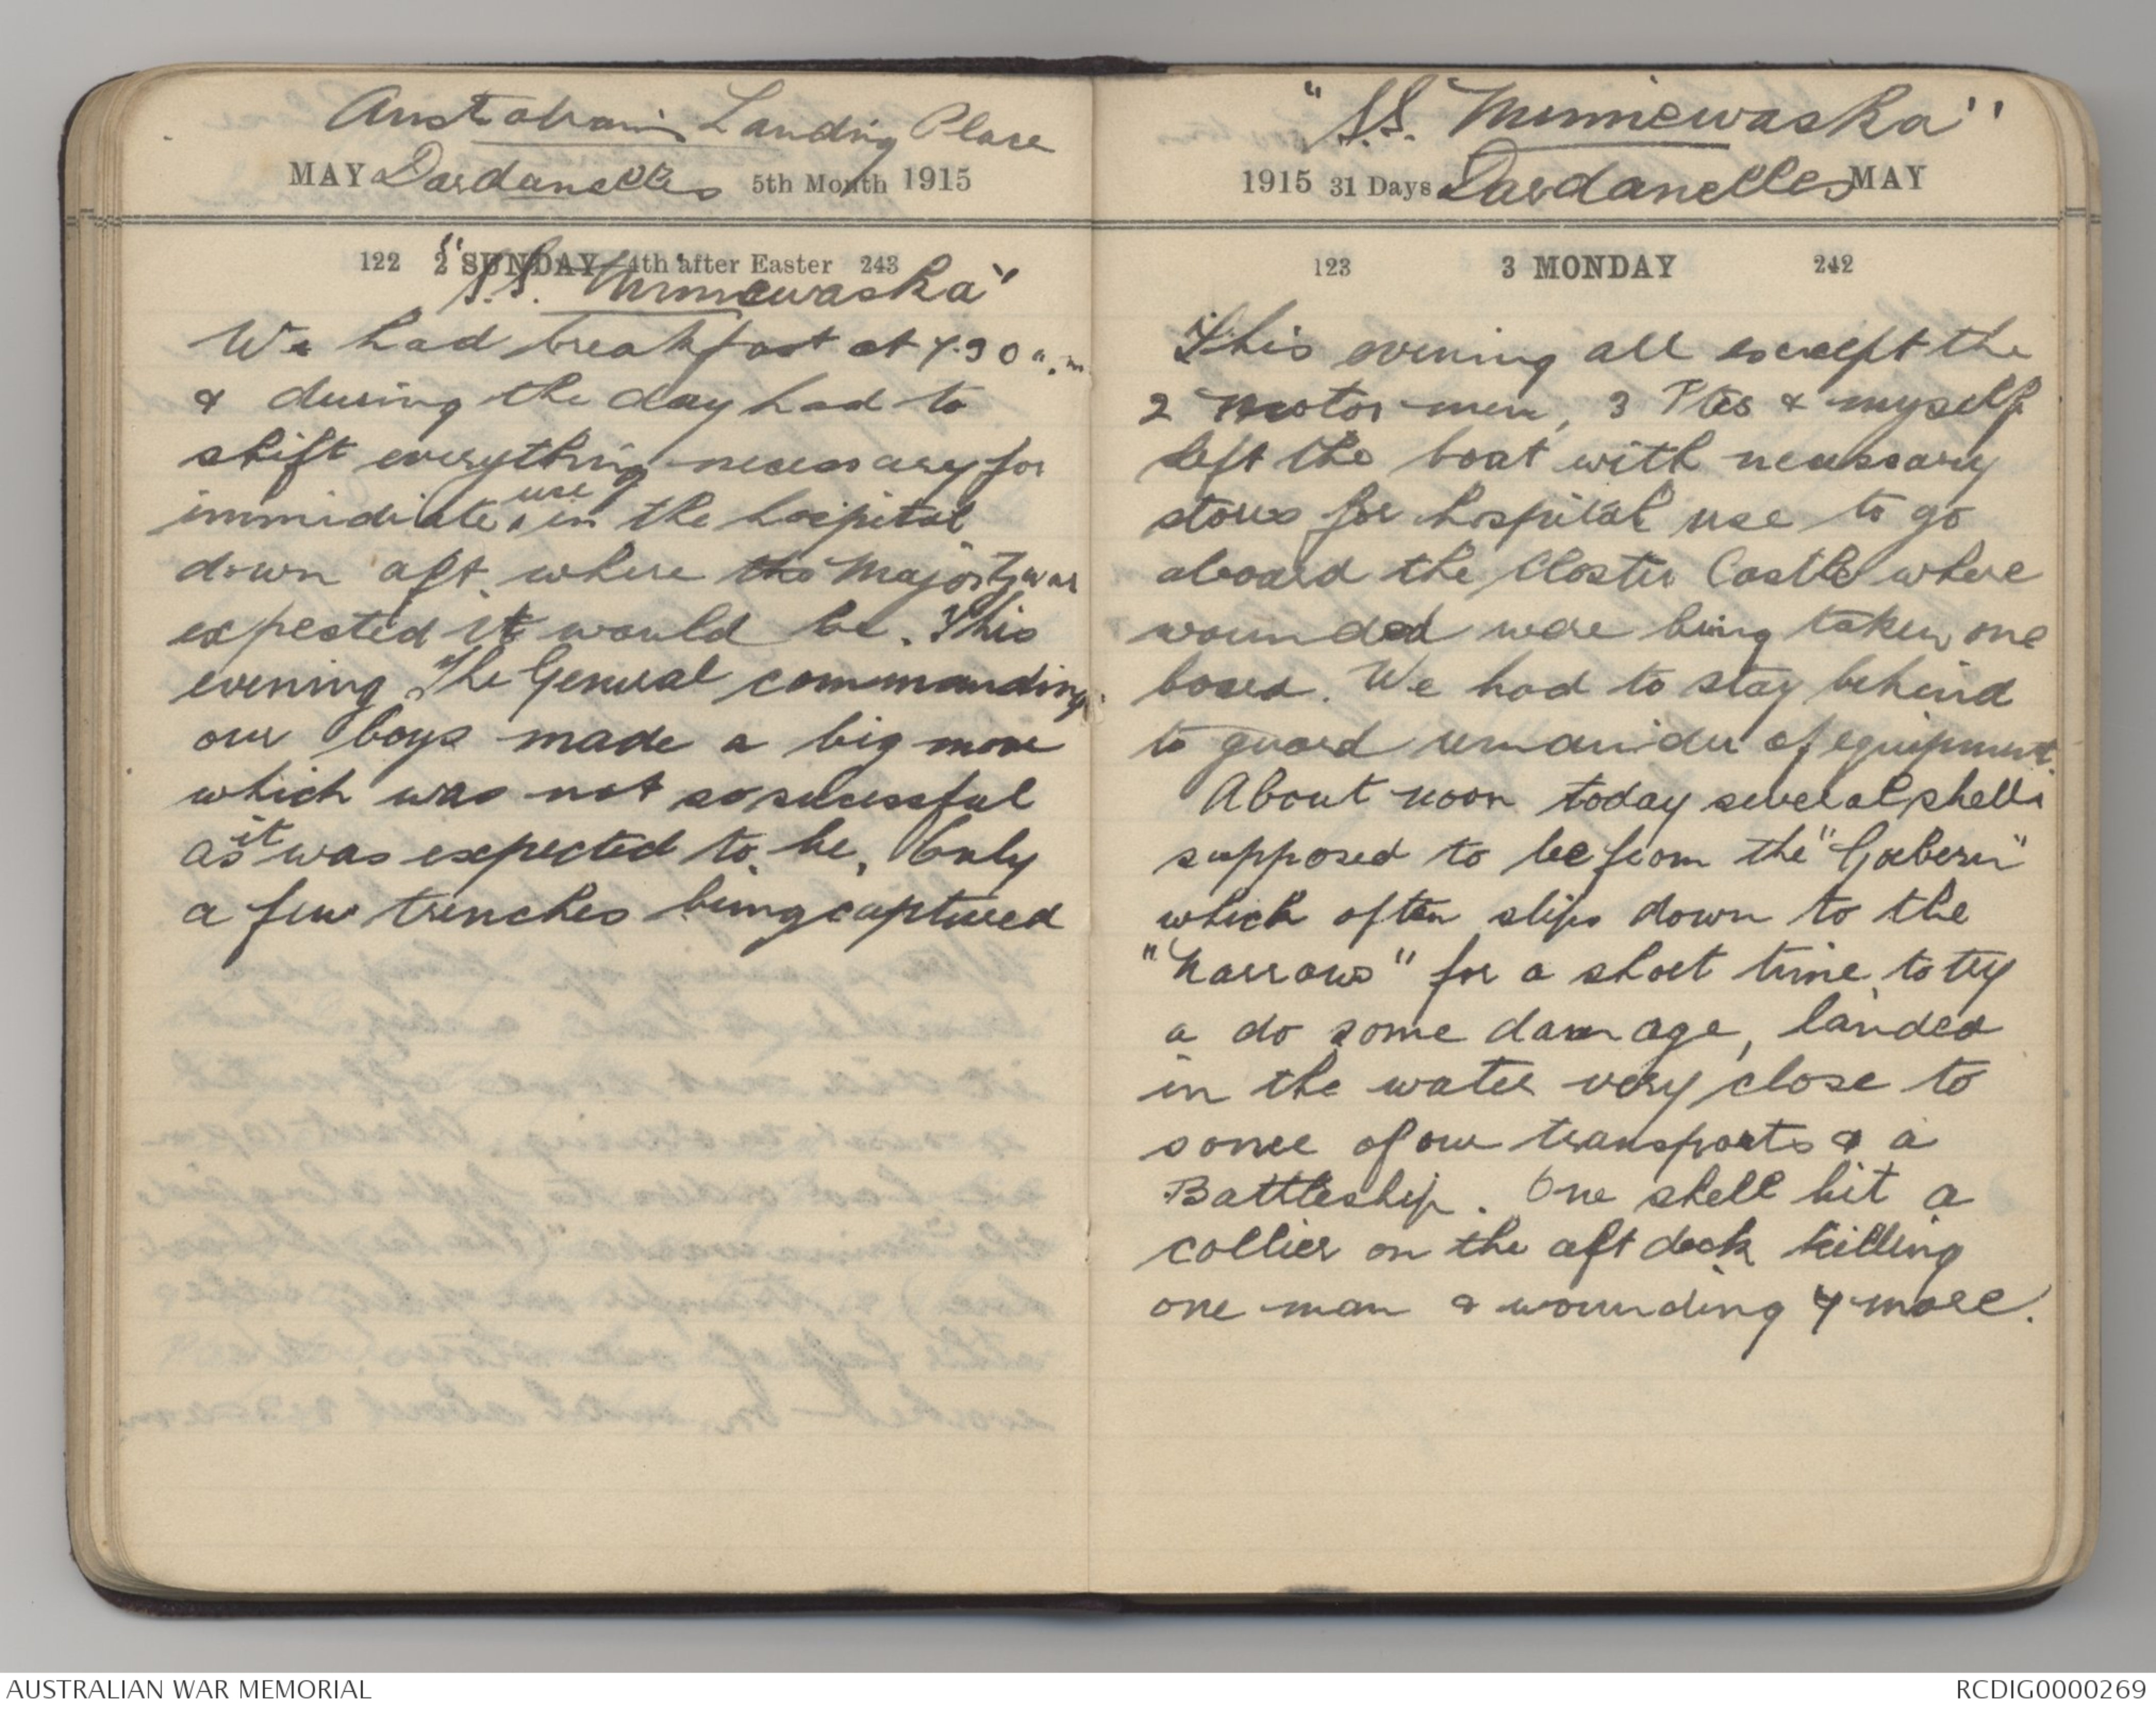 Australian's Landing Place
MAY Dardanelles 5th Month 1915
122 2 SUNDAY 4th after Easter 243
"S.S. Minnewaska"
We had breakfast at 7.30 a.m.
& during the day had to
shift everything necessary for
immidiate use in the hospital
down aft where the Majority was
expected it would be. This
evening The General commanding
our boys made a big move
which was not so sucessful
as it was expected to be, only
a few trenches being captured
"S.S. Minniewaska"
1915 31 Days Dardanelles MAY
123 3 MONDAY 242
This evening all except the
2 motor men, 3 Ptes & myself
left the boat with necessary
stores for hospital use to go
aboard the Closter Castle where
wounded were being taken one
board. We had to stay behind
to guard remainder of equipment.
About noon today several shells
supposed to be from the "Goebern"
which often slips down to the
"Narrows" for a short time to try
a do some damage, landed
in the water very close to
some of our transports & a
Battleship. One shell hit a
collier on the aft deck killing
one man & wounding 4 more.
AUSTRALIAN WAR MEMORIAL
RCDIG0000269